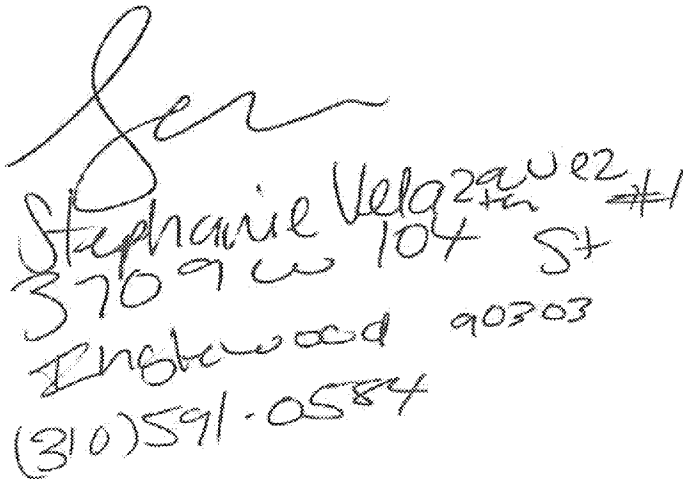 Stephanie Velazquez
3709 w 104th St #1
Inglewood 90303
(310)591-0584